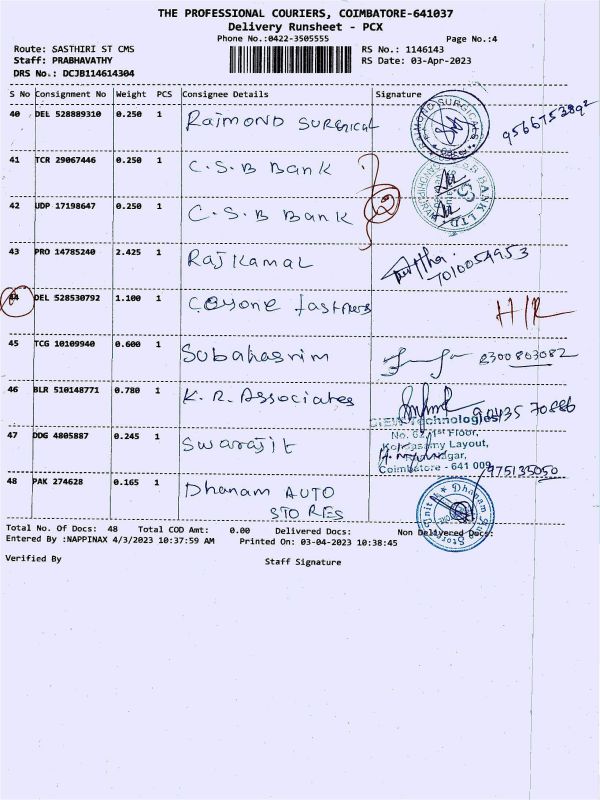 THE PROFESSIONAL COURIERS, COIMBATORE-641037
Delivery Runsheet - PCX
Phone No.:0422-3505555 Page No.:4
Route: SASTHIRI ST CMS RS No.: 1146143
Staff: PRABHAVATHY RS Date: 03-Apr-2023
DRS No.: DCJB114614304
S No Consignment No Weight PCS Consignee Details Signature
40 DEL 528889310 0.250 1 Raimond Surgical 9566753892
41 TCR 29067446 0.250 1 C.S.B Bank
42 UDP 17198647 0.250 1 C.S.B Bank 2
43 PRO 14785240 2.425 1 Rajkamal 7010054953
44 DEL 528530792 1.100 1 H/R
45 TCG 10109940 0.600 1 Subahasrim 8300803082
46 BLR 510148771 0.780 1 K.R. Associates
Technologies
No. 62, 1st Floor,
47 DDG 4805887 0.245 1 Swarajit Layout,
Coimbatore - 641 009 975135050
48 PAK 274628 0.165 1 Dhanam Auto
Stores
Dhanam Auto Stores
Total No. Of Docs: 48 Total COD Amt: 0.00 Delivered Docs: Non Delivered Docs:
Entered By :NAPPINAX 4/3/2023 10:37:59 AM Printed On: 03-04-2023 10:38:45
Verified By Staff Signature